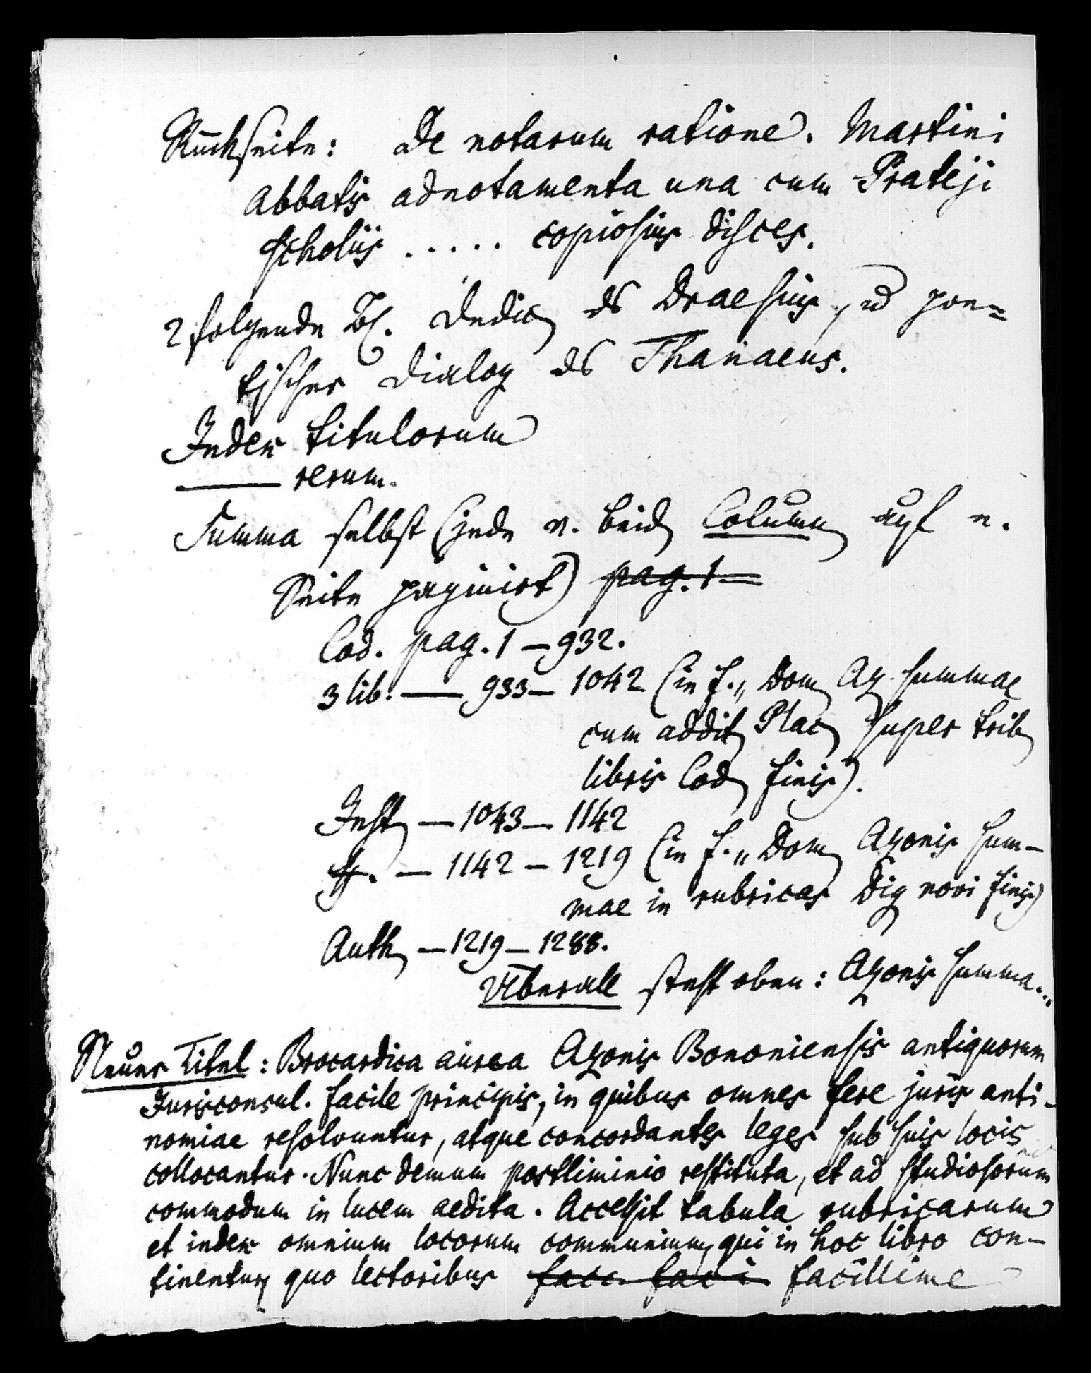 Rückseite: De notarum ratione. Martini
Abbatis adnotamenta una cum Prateji
scholiis ..... copiosius disces.
2 folgende Bl. Dedic des Draesius, u poe=
tischer Dialog des Thanaeus.
Index titulorum
—— rerum.
Summa selbst (jede v. beid Column auf e.
Seite paginirt) pag. 1 —
Cod. pag. 1 — 932.
3 lib. — 933 — 1042 (in f. „Dom Az. summae
cum addit Plac super trib
libris Cod finis).
Inst — 1043 — 1142
ff. — 1142 — 1219 (in f. „Dom Azonis sum-
mae in rubricas Dig novi finis)
Auth — 1219 — 1288.
Überall steht oben: Azonis summa...
Neuer Titel: Brocardica aurea Azonis Bononiensis antiquorum
Jurisconsul. facile principis, in quibus omnes fere juris anti-
nomiae resolvuntur, atque concordantes leges sub suis locis
collocantur. Nunc demum postliminio restituta, et ad studiosorum
commodum in lucem aedita. Accessit tabula rubricarum
et index omnium locorum communium, qui in hoc libro con-
tinentur, quo lectoribus facc faci facillime